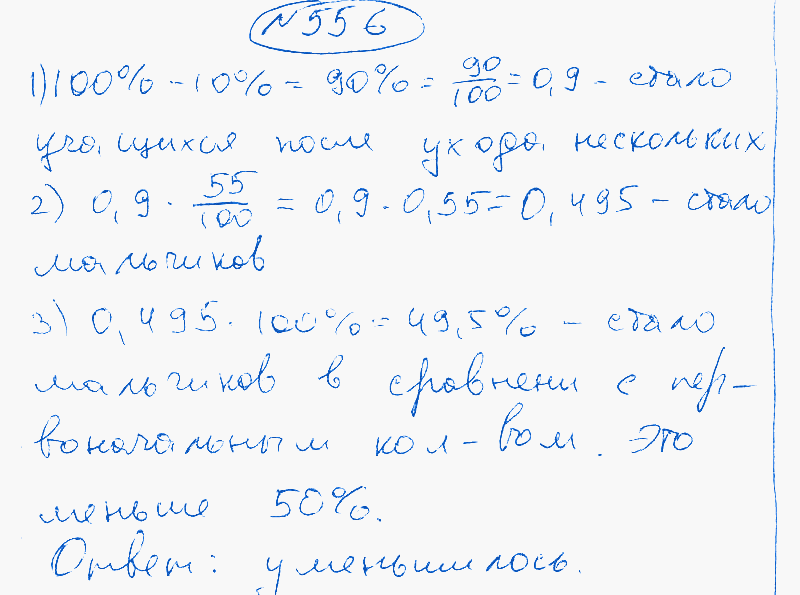 № 556
1) 100% - 10% = 90% = 90/100 = 0,9 - стало
учащихся после ухода нескольких
2) 0,9 · 55/100 = 0,9 · 0,55 = 0,495 - стало
мальчиков
3) 0,495 · 100% = 49,5% - стало
мальчиков в сравнени с пер-
воначальным кол-вом. Это
меньше 50%.
Ответ: уменьшилось.